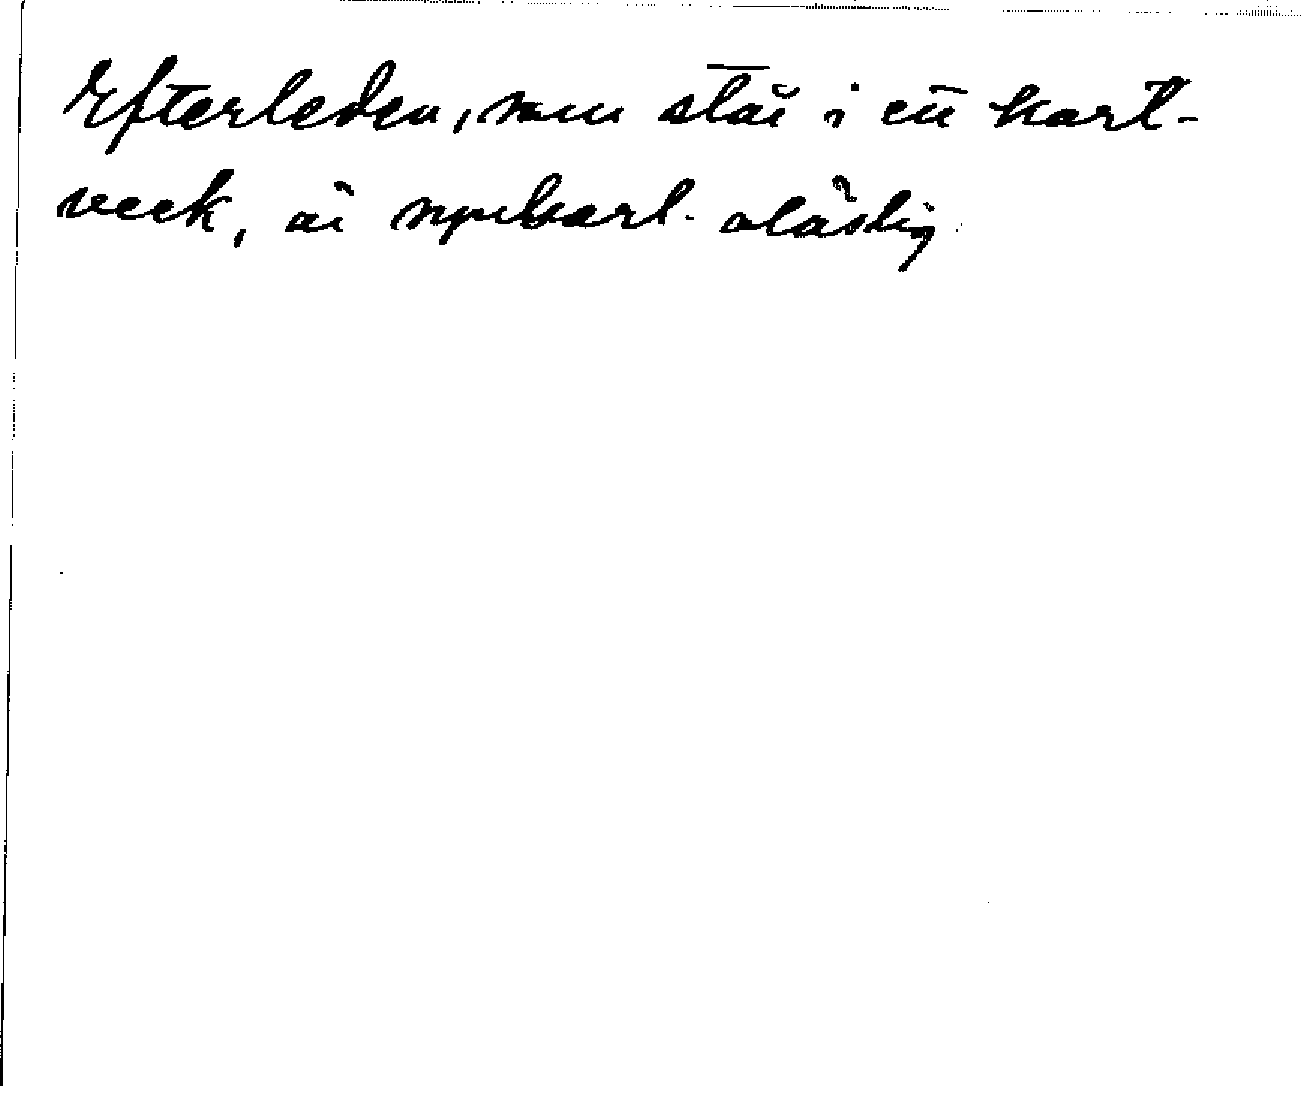 Efterleden, som står i ett kart-
veck, är mycket oläslig.